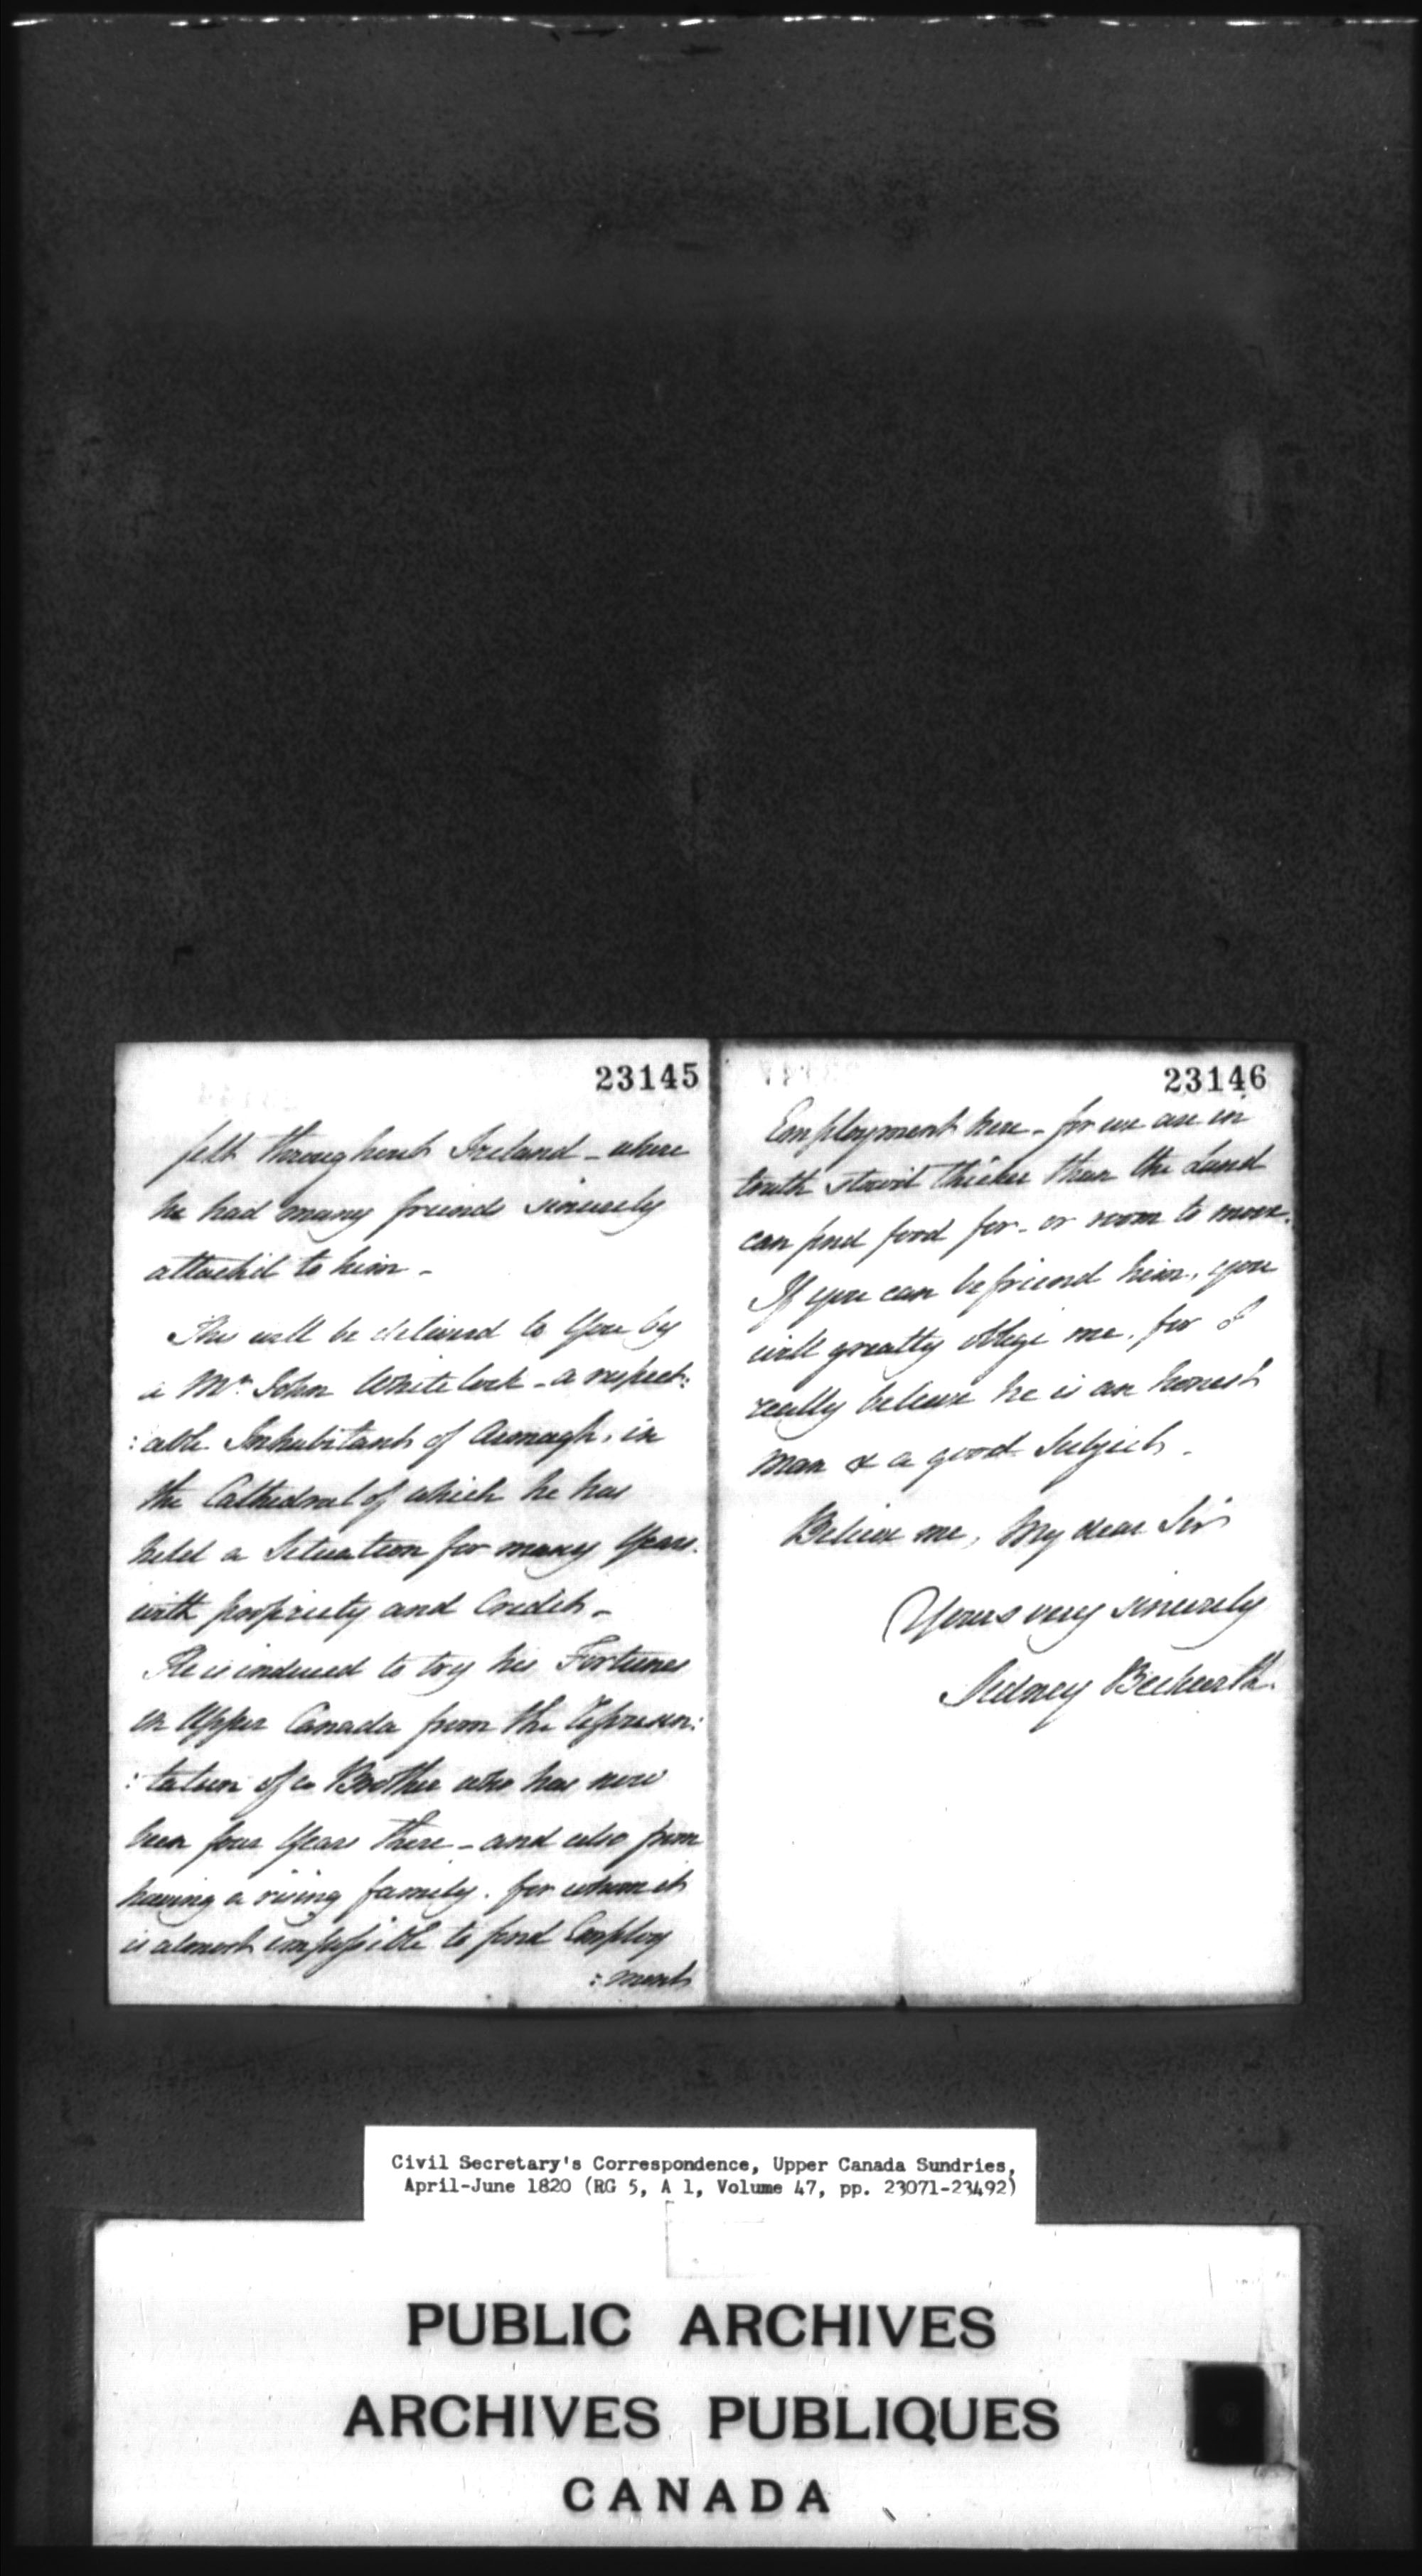 23145
felt throughout Ireland - where
he had many friends sincerely
attach'd to him -
This will be delivered to You by
a Mr. John Whitelock - a respect:
:able Inhabitant of Armagh, in
the Cathedral of which he has
held a Situation for many Years.
with propriety and Credit -
He is induced to try his Fortunes
in Upper Canada from the represen:
:tation of a Brother who has now
been four Years there - and also from
having a rising family. for whom it
is almost impossible to find Employ
:ment
23146
Employment here - for we are in
truth stow'd thicker than the Land
can find food for - or room to move.
If you can befriend him, you
will greatly oblige me, for I
really believe he is an honest
man & a good Subject.
Believe me, My dear Sir
Yours very sincerely
Sidney Beckwith.
Civil Secretary's Correspondence, Upper Canada Sundries,
April-June 1820 (RG 5, A 1, Volume 47, pp. 23071-23492)
PUBLIC ARCHIVES
ARCHIVES PUBLIQUES
CANADA